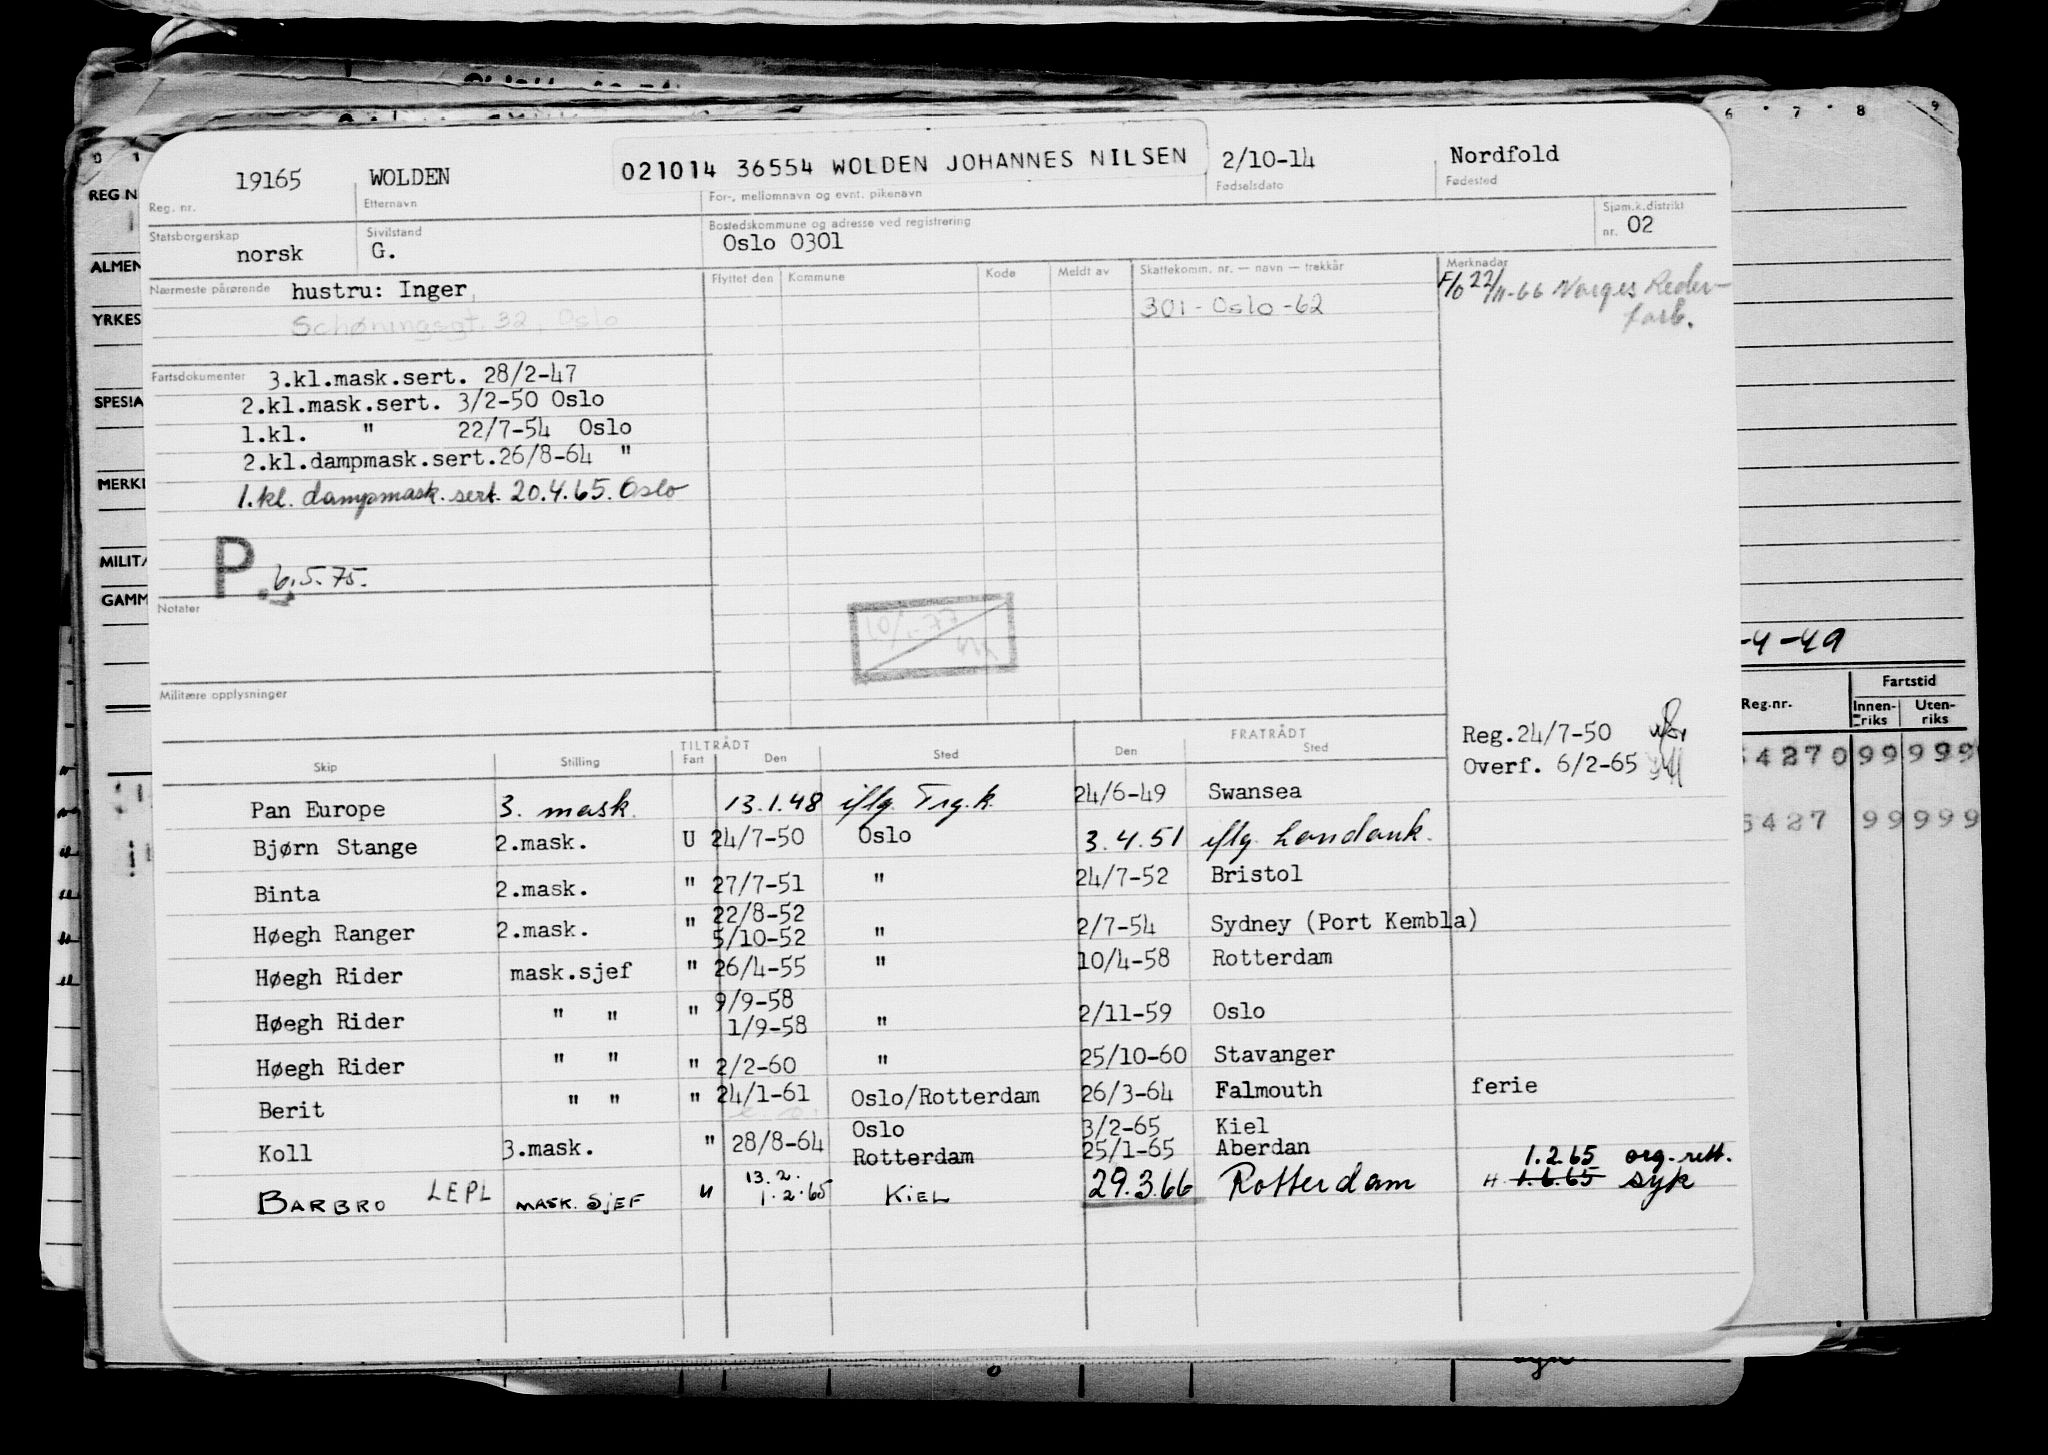 6 7 8 9
0 1
REG.N
ALMEN
YRKES
SPESIA
MERKI
MILITÆ
GAMM
19165 WOLDEN 021014 36554 WOLDEN JOHANNES NILSEN 2/10-14 Nordfold
Reg. nr. Etternavn For-, mellomnavn og evnt. pikenavn Fødselsdato Fødested
Statsborgerskap Sivilstand Bostedskommune og adresse ved registrering Sjøm.k.distrikt
norsk G. Oslo 0301 nr. 02
Nærmeste pårørende hustru: Inger, Flyttet den Kommune Kode Meldt av Skattekomm. nr. — navn — trekkår Merknader
Schøningsgt. 32, Oslo 301 - Oslo -62 F/O 22/11-66 Norges Reder-
forb.
Fartsdokumenter 3.kl.mask.sert. 28/2-47
2.kl.mask.sert. 3/2-50 Oslo
1.kl. " 22/7-54 Oslo
2.kl.dampmask.sert.26/8-64 "
1.kl. dampmask. sert. 20.4.65. Oslo
P. 6.5.75.
Notater
Militære opplysninger
-4-49
Reg.nr. Fartstid
Innen-riks Uten-riks
54270 99 999
5427 99 999
TILTRÅDT FRATRÅDT Reg.24/7-50
Skip Stilling Fart Den Sted Den Sted Overf. 6/2-65
Pan Europe 3. mask. 13.1.48 iflg. Trg.k. 24/6-49 Swansea
Bjørn Stange 2.mask. U 24/7-50 Oslo 3.4.51 iflg. Landank.
Binta 2.mask. " 27/7-51 " 24/7-52 Bristol
22/8-52
Høegh Ranger 2.mask. " 5/10-52 " 2/7-54 Sydney (Port Kembla)
Høegh Rider mask.sjef " 26/4-55 " 10/4-58 Rotterdam
9/9-58
Høegh Rider " " " 1/9-58 " 2/11-59 Oslo
Høegh Rider " " " 2/2-60 " 25/10-60 Stavanger
Berit " " " 24/1-61 Oslo/Rotterdam 26/3-64 Falmouth ferie
Oslo 3/2-65 Kiel
Koll 3.mask. " 28/8-64 Rotterdam 25/1-65 Aberdan
13.2. 1.2.65 org.rett.
BARBRO LEPL MASK. SJEF " 1.2.65 KIEL 29.3.66 Rotterdam H 1.6.65 syk